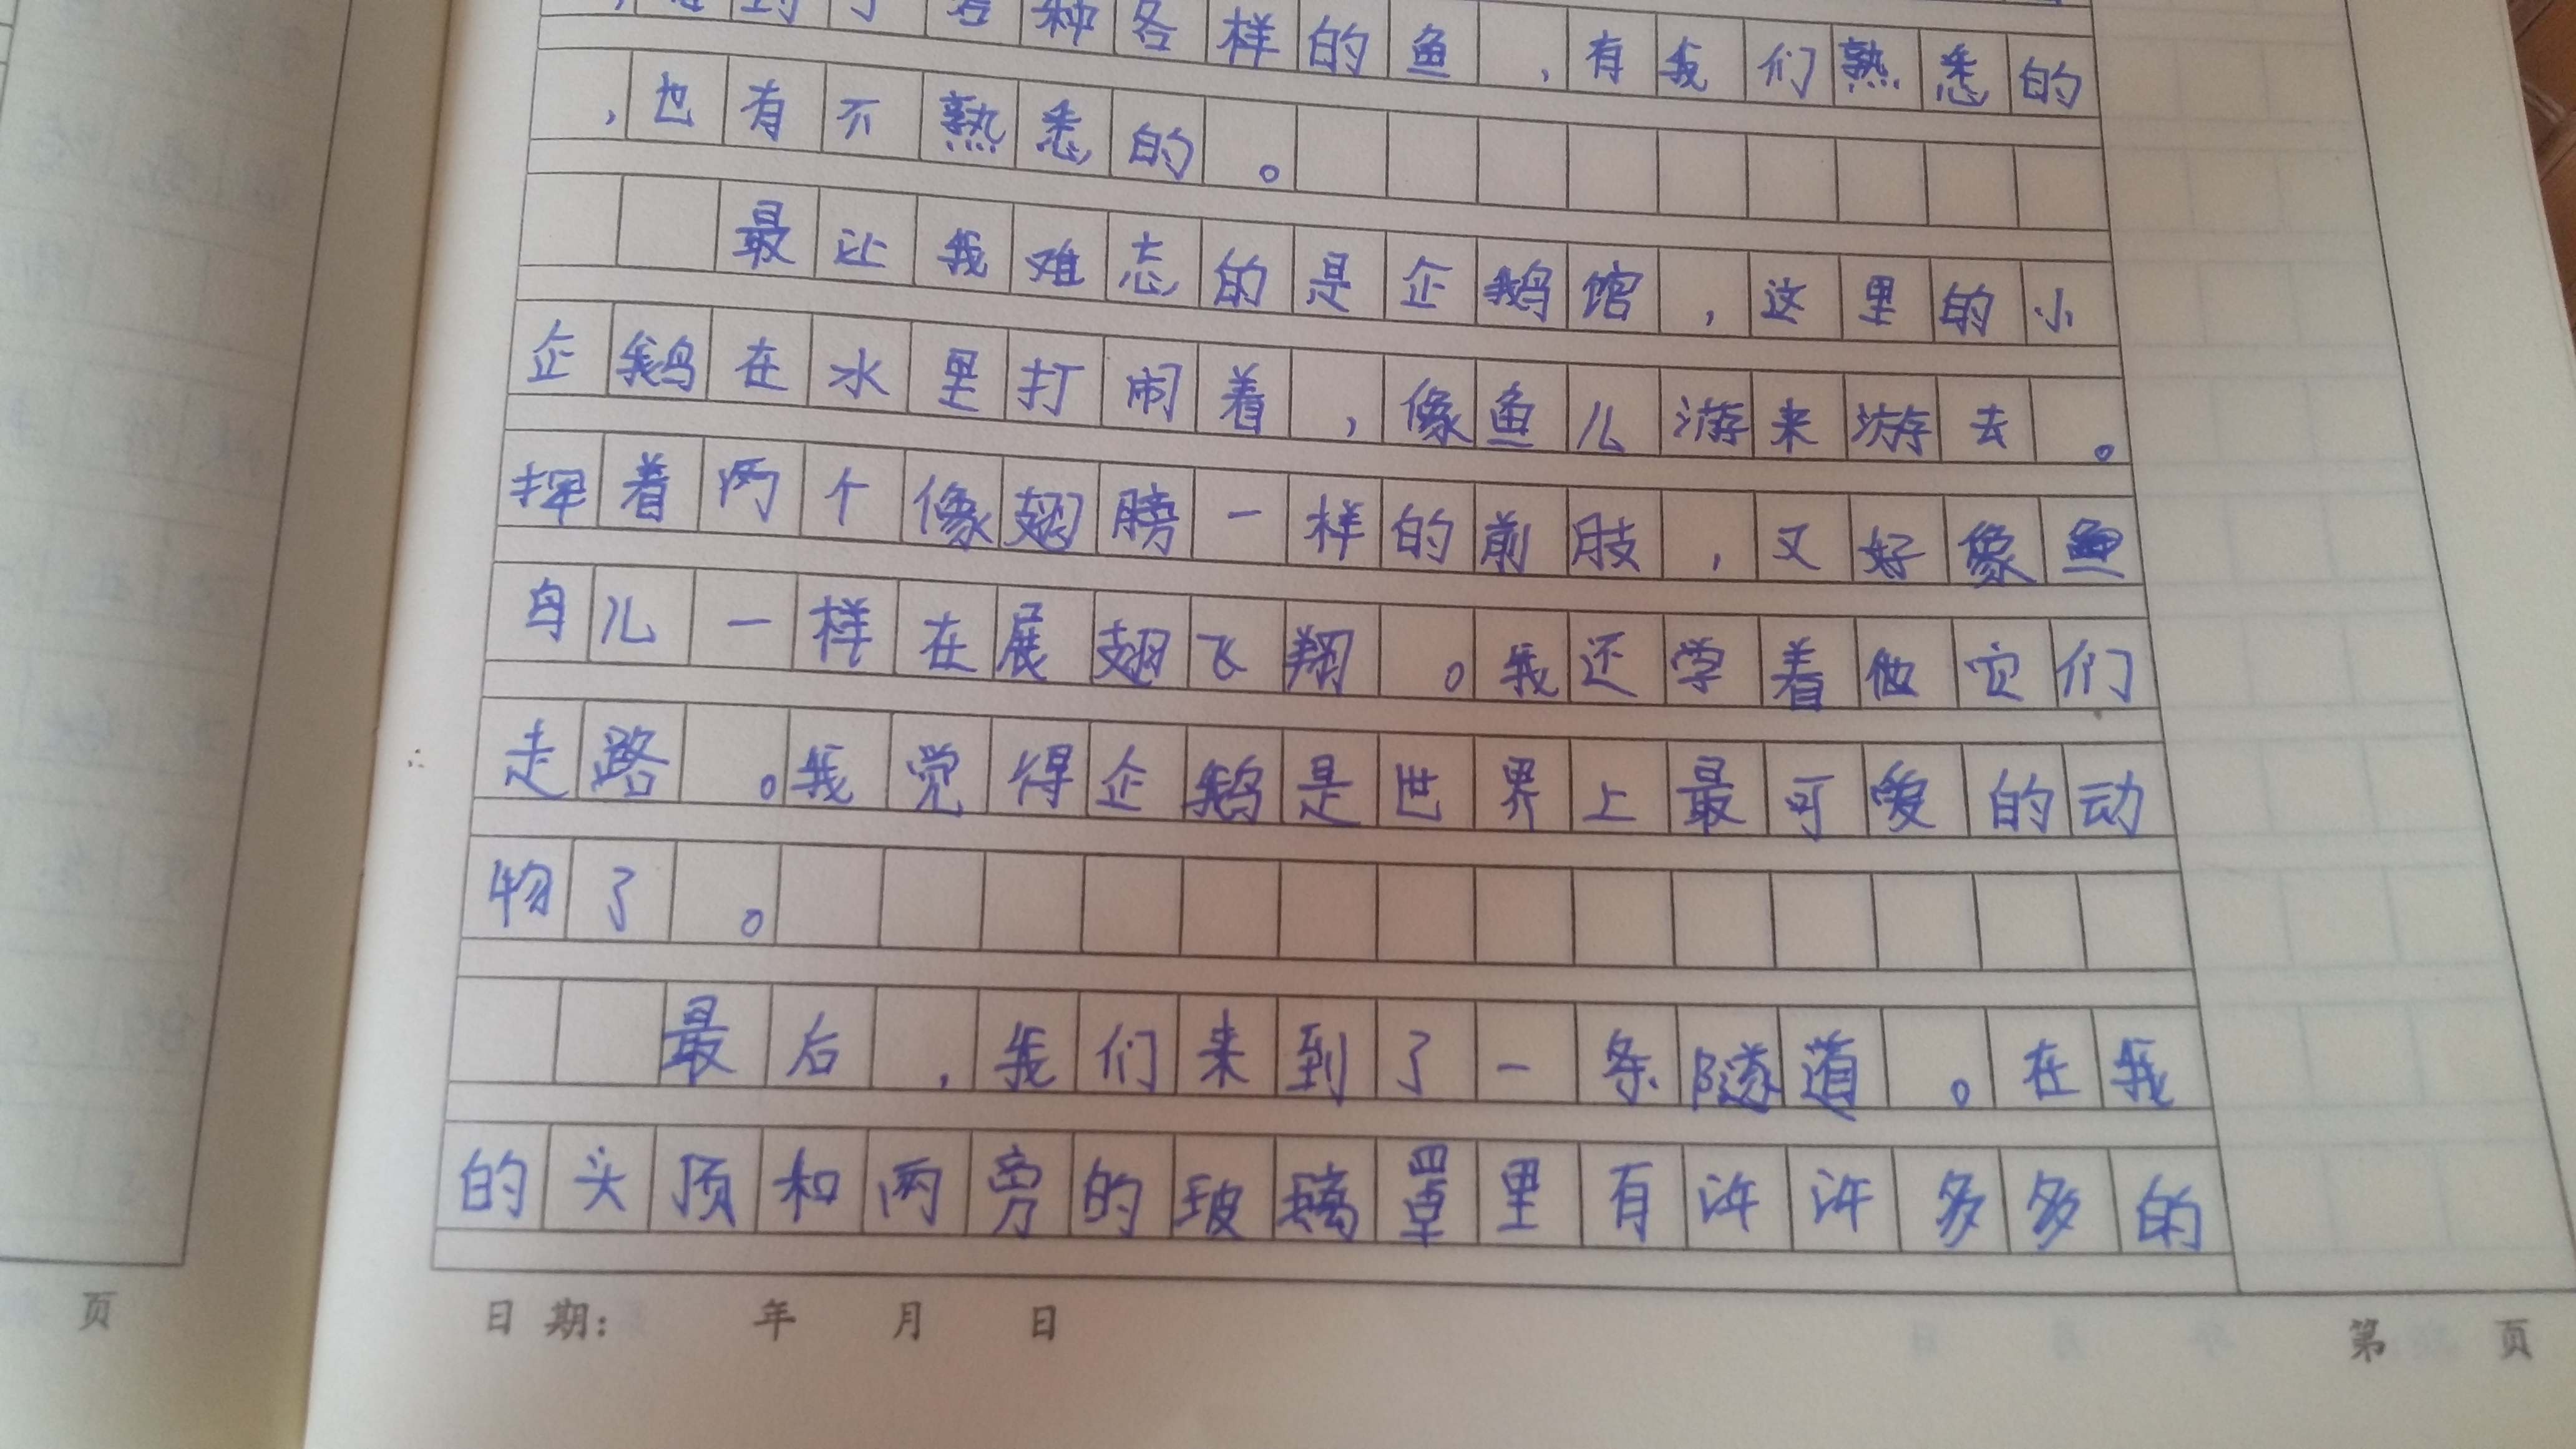 到了各种各样的鱼，有我们熟悉的
，也有不熟悉的。
最让我难忘的是企鹅馆，这里的小
企鹅在水里打闹着，像鱼儿游来游去。
挥着两个像翅膀一样的前肢，又好像
鸟儿一样在展翅飞翔。我还学着他它们
走路。我觉得企鹅是世界上最可爱的动
物了。
最后，我们来到了一条隧道。在我
的头顶和两旁的玻璃罩里有许许多多的
日期： 年 月 日
第 页
页